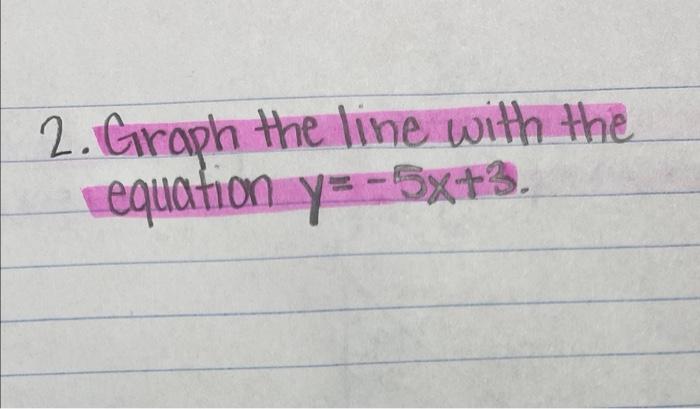 2. Graph the line with the
equation y=-5x+3.